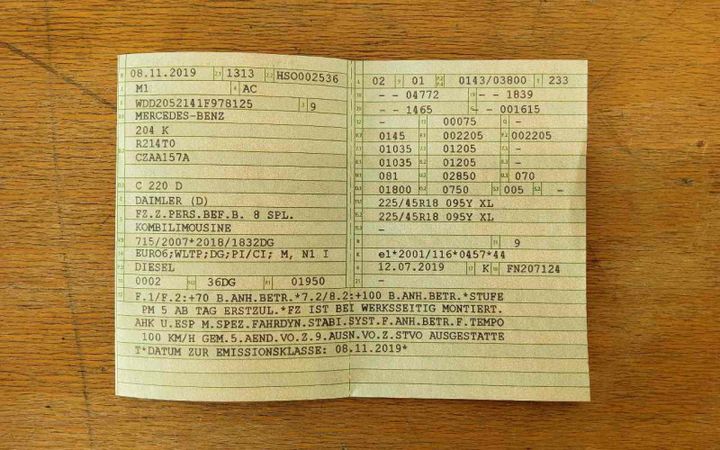 08.11.2019 1313 HSO002536
M1 AC
WDD2052141F978125 9
MERCEDES-BENZ
204 K
R214T0
CZAA157A
C 220 D
DAIMLER (D)
FZ.Z.PERS.BEF.B. 8 SPL.
KOMBILIMOUSINE
715/2007*2018/1832DG
EURO6;WLTP;DG;PI/CI; M, N1 I
DIESEL
0002 36DG 01950
F.1/F.2:+70 B.ANH.BETR.*7.2/8.2:+100 B.ANH.BETR.*STUFE
PM 5 AB TAG ERSTZUL.*FZ IST BEI WERKSSEITIG MONTIERT.
AHK U.ESP M.SPEZ.FAHRDYN.STABI.SYST.F.ANH.BETR.F.TEMPO
100 KM/H GEM.5.AEND.VO.Z.9.AUSN.VO.Z.STVO AUSGESTATTE
T*DATUM ZUR EMISSIONSKLASSE: 08.11.2019*
02 01 0143/03800 233
- - 04772 - - 1839
- - 1465 - - 001615
- 00075 -
0145 002205 002205
01035 01205 -
01035 01205 -
081 02850 070
01800 0750 005 -
225/45R18 095Y XL
225/45R18 095Y XL
-
9
e1*2001/116*0457*44
12.07.2019 K FN207124
-